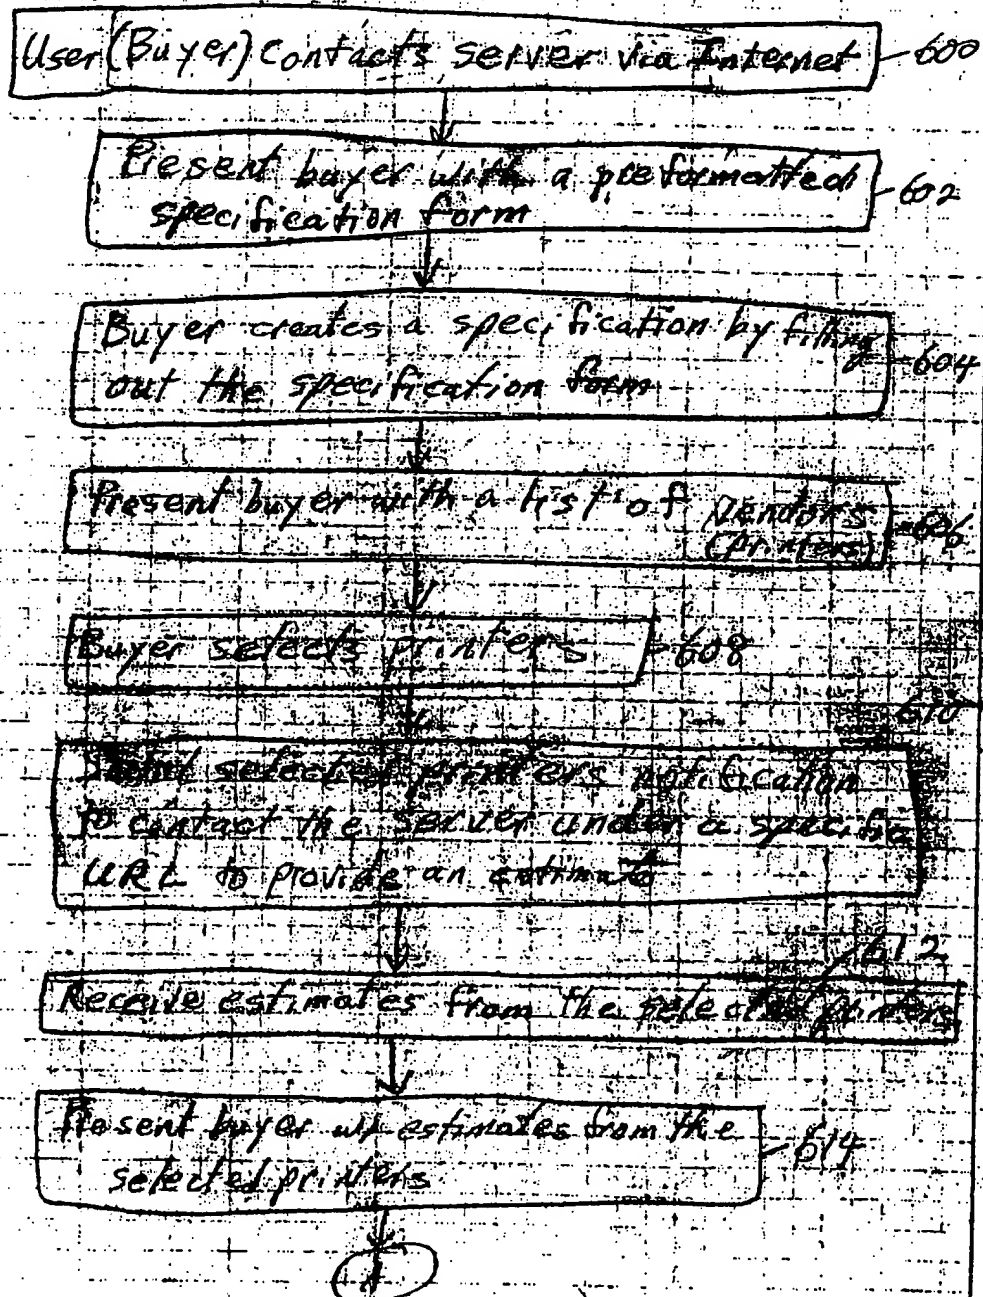 User (Buyer) contacts server via Internet 600
Present buyer with a preformatted 602
specification form
Buyer creates a specification by filling 604
out the specification form
Present buyer with a list of vendors 606
(printers)
Buyer selects printers 608
610
selected printers notification
to contact the server under a specific
URL to provide an estimate
612
Receive estimates from the selected printers
Present buyer w/ estimates from the 614
selected printers